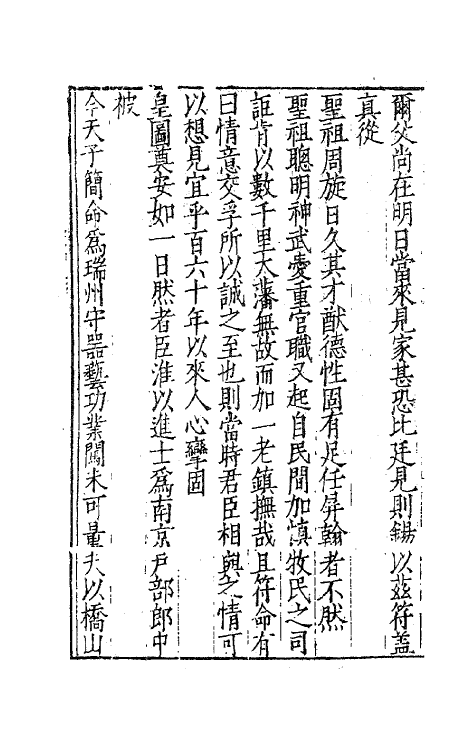 爾父尚在明日當來見家甚恐比廷見則錫以茲符蓋
真從
聖祖周旋日久其才猷德性固有足任屏翰者不然
聖祖聰明神武愛重官職又起自民間加慎牧民之司
詎肯以數千里大藩無故而加一老鎮撫哉且符命有
曰情意交孚所以誠之至也則當時君臣相與之情可
以想見宜乎百六十年以來人心攣固
皇圖奠安如一日然者臣淮以進士為南京戶部郎中
被
今天子簡命為瑞州守器藝功業闖未可量夫以橋山